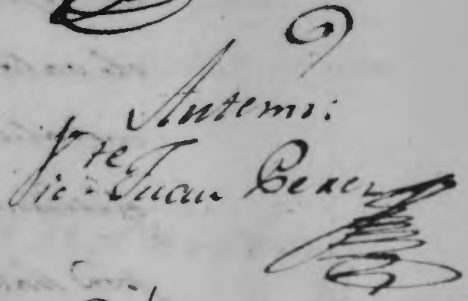 Antemi:
Vicᵗᵉ Juan Perez